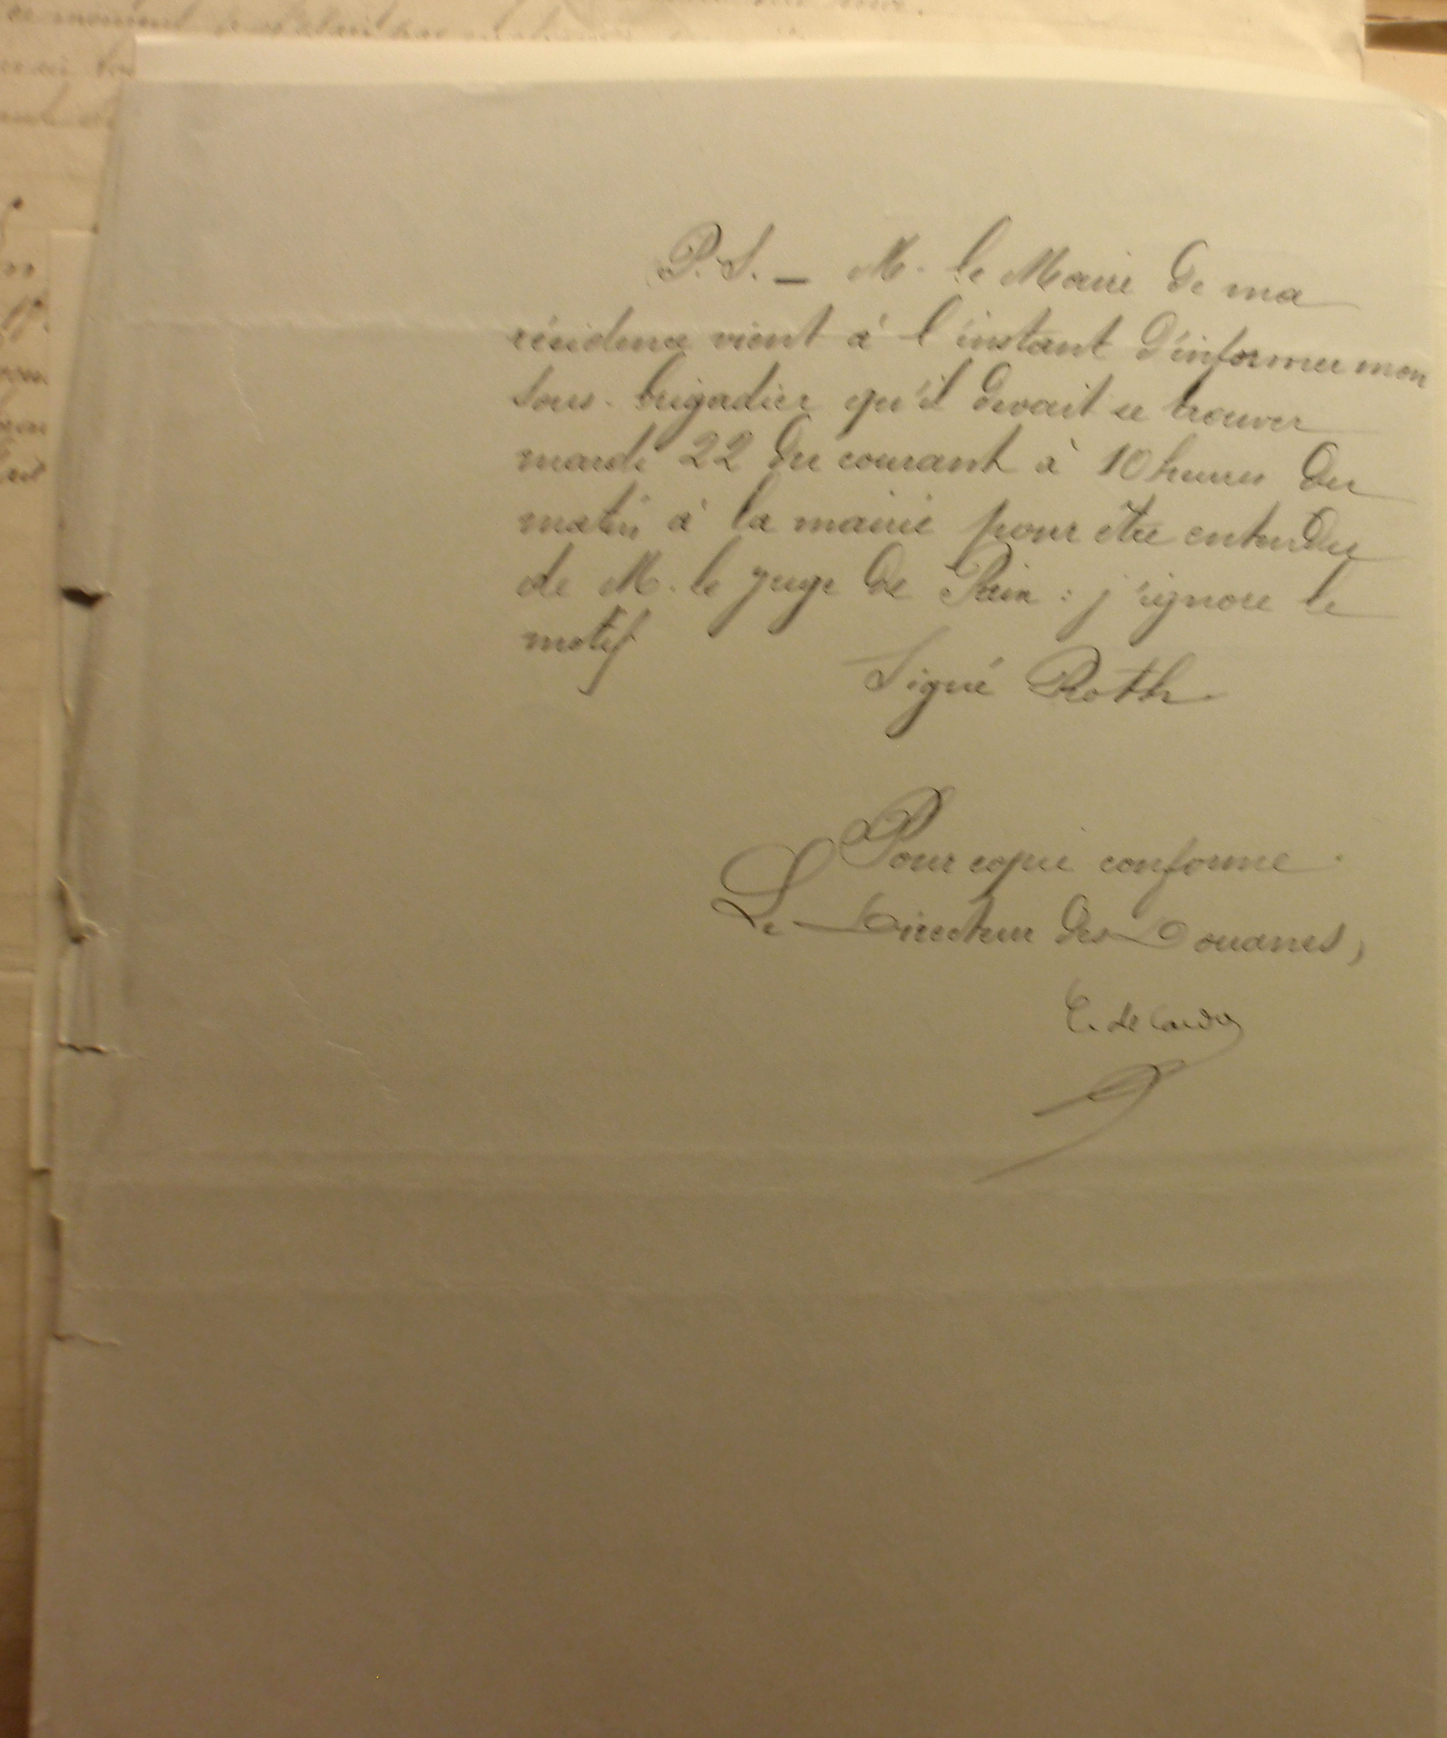 P.S. — M. le Maire de ma
résidence vient à l'instant d'informer mon
sous-brigadier qu'il devait se trouver
mardi 22 du courant à 10 heures du
matin à la mairie pour être entendu
de M. le juge de Paix : j'ignore le
motif
Signé Roth
Pour copie conforme
Le Directeur des Douanes,